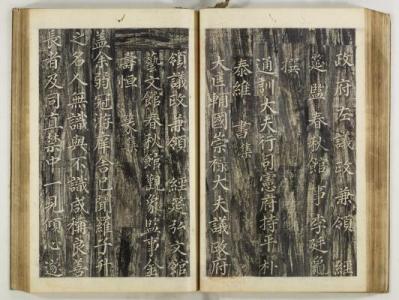 政府左議政兼領 經
筵監春秋館事李廷龜
撰
通訓大夫行司憲府持平朴
泰維 書 集
大匡輔國崇祿大夫議政府
領議政兼領 經筵弘文館
藝文館春秋館觀象監事金
壽恒 篆 集
蓋余弱冠游庠舍已聞羅子升
之名人無識與不識咸稱良焉
長者及同直禁中一見傾心遂